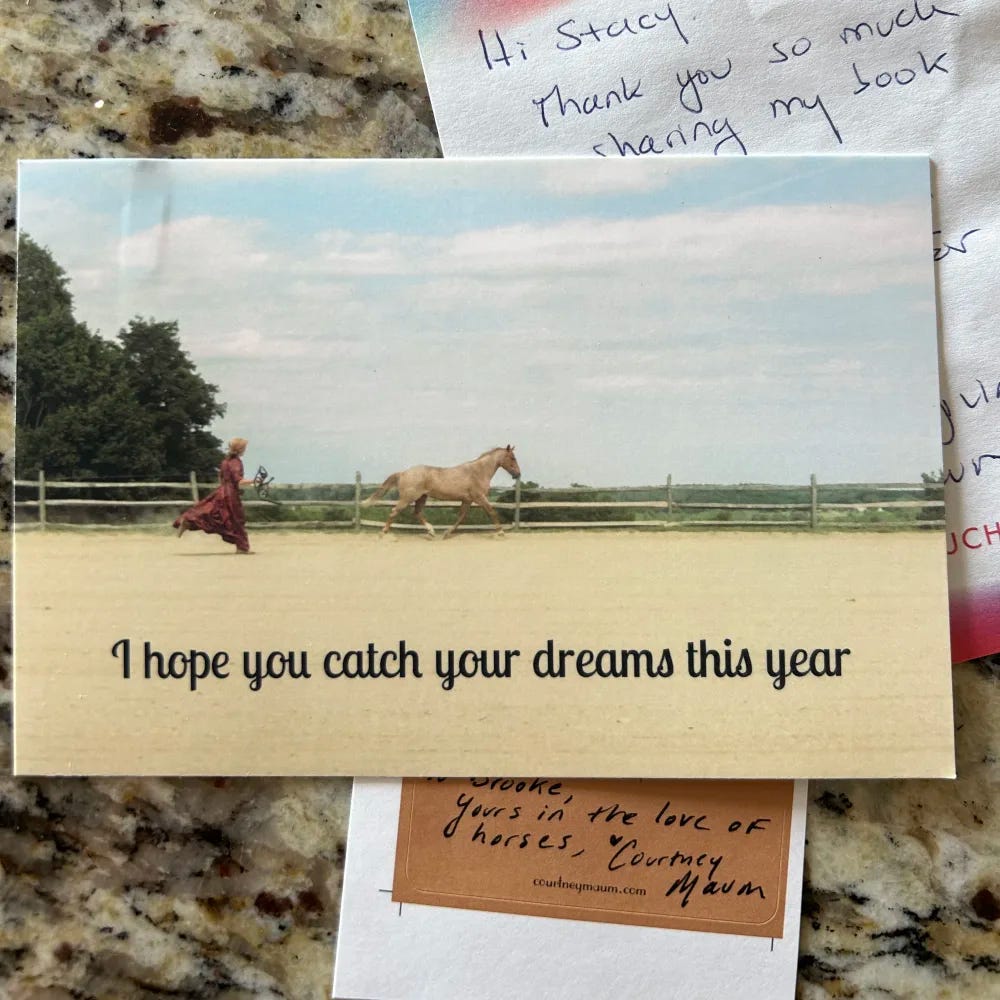 Hi Stacy.
Thank you so much
sharing my book
I hope you catch your dreams this year
Brooke,
yours in the love of
horses, Courtney
Maum
courtneymaum.com